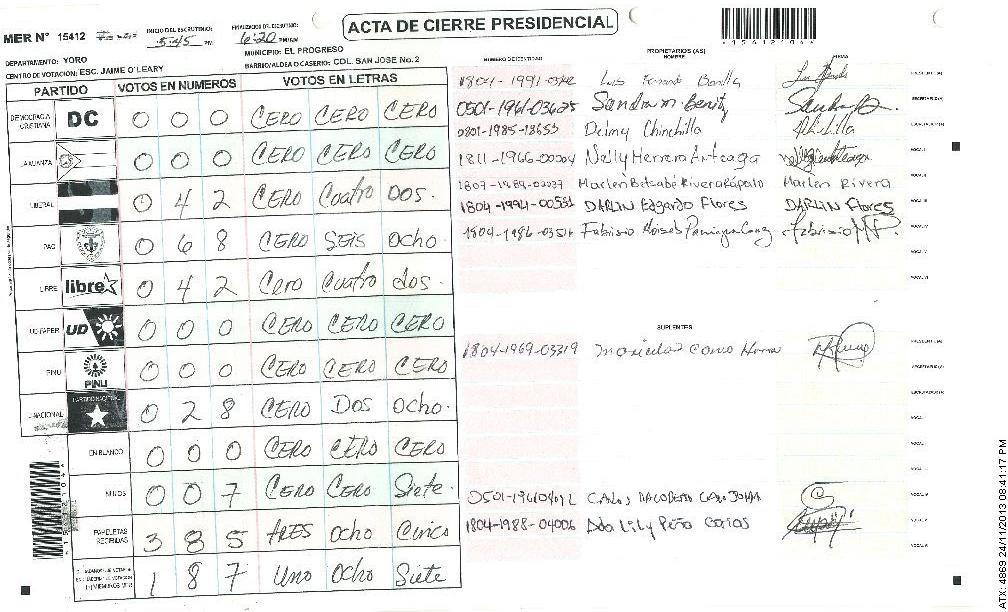 ACTA DE CIERRE PRESIDENCIAL
MER Nº 15412
INICIO DEL ESCRUTINIO: 5:45 PM
FINALIZACION DEL ESCRUTINIO: 6:20 PM/AM
DEPARTAMENTO: YORO
MUNICIPIO: EL PROGRESO
CENTRO DE VOTACION: ESC. JAIME O'LEARY
BARRIO/ALDEA O CASERIO: COL. SAN JOSE No. 2
PARTIDO VOTOS EN NUMEROS VOTOS EN LETRAS
DEMOCRACIA CRISTIANA DC 0 0 0 CERO CERO CERO
ALIANZA 0 0 0 CERO CERO CERO
LIBERAL 0 4 2 CERO Cuatro DOS.
PAC 0 6 8 CERO SEIS OCHO.
LIBRE libre 0 4 2 Cero Cuatro dos.
UD-FAPER UD 0 0 0 CERO CERO CERO
PINU PINU 0 0 0 CERO CERO CERO
NACIONAL PARTIDO NACIONAL 0 2 8 CERO DOS OCHO.
EN BLANCO 0 0 0 CERO CERO CERO
NULOS 0 0 7 CERO CERO Siete.
PAPELETAS RECIBIDAS 3 8 5 tRES OCHO Cinco
1 8 7 UNO OCHO Siete
PROPIETARIOS (AS)
NUMERO DE IDENTIDAD NOMBRE FIRMAS
Luis Fernando Bonilla PRESIDENTE (A)
Sandra m. Benitz SECRETARIO (A)
0801-1985-18653 Delmy Chinchilla ESCRUTADOR (A)
1811-1966-00004 Nelly Herrera Arteaga VOCAL I
Marlen Betsabé Rivera Rápalo Marlen Rivera VOCAL II
1804-1994-00531 DARLIN Edgardo Flores DARLIN Flores VOCAL III
Fabrisio Moises VOCAL IV
VOCAL V
VOCAL VI
SUPLENTES
1804-1969-03319 PRESIDENTE (A)
SECRETARIO (A)
ESCRUTADOR (A)
VOCAL I
VOCAL II
VOCAL III
VOCAL IV
1804-1988-04006 Ada Lily Peña VOCAL V
VOCAL VI
ATX: 4869 24/11/2013 08:41:17 PM